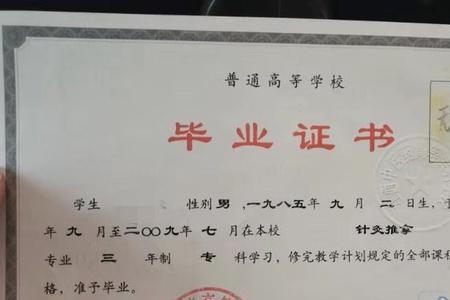 普通高等学校
毕业证书
学生 性别 男，一九八五年 九 月 二 日生，
年 九 月至二〇〇九年 七 月在本校 针灸推拿
专业 三 年制 专 科学习，修完教学计划规定的全部课程
格，准予毕业。